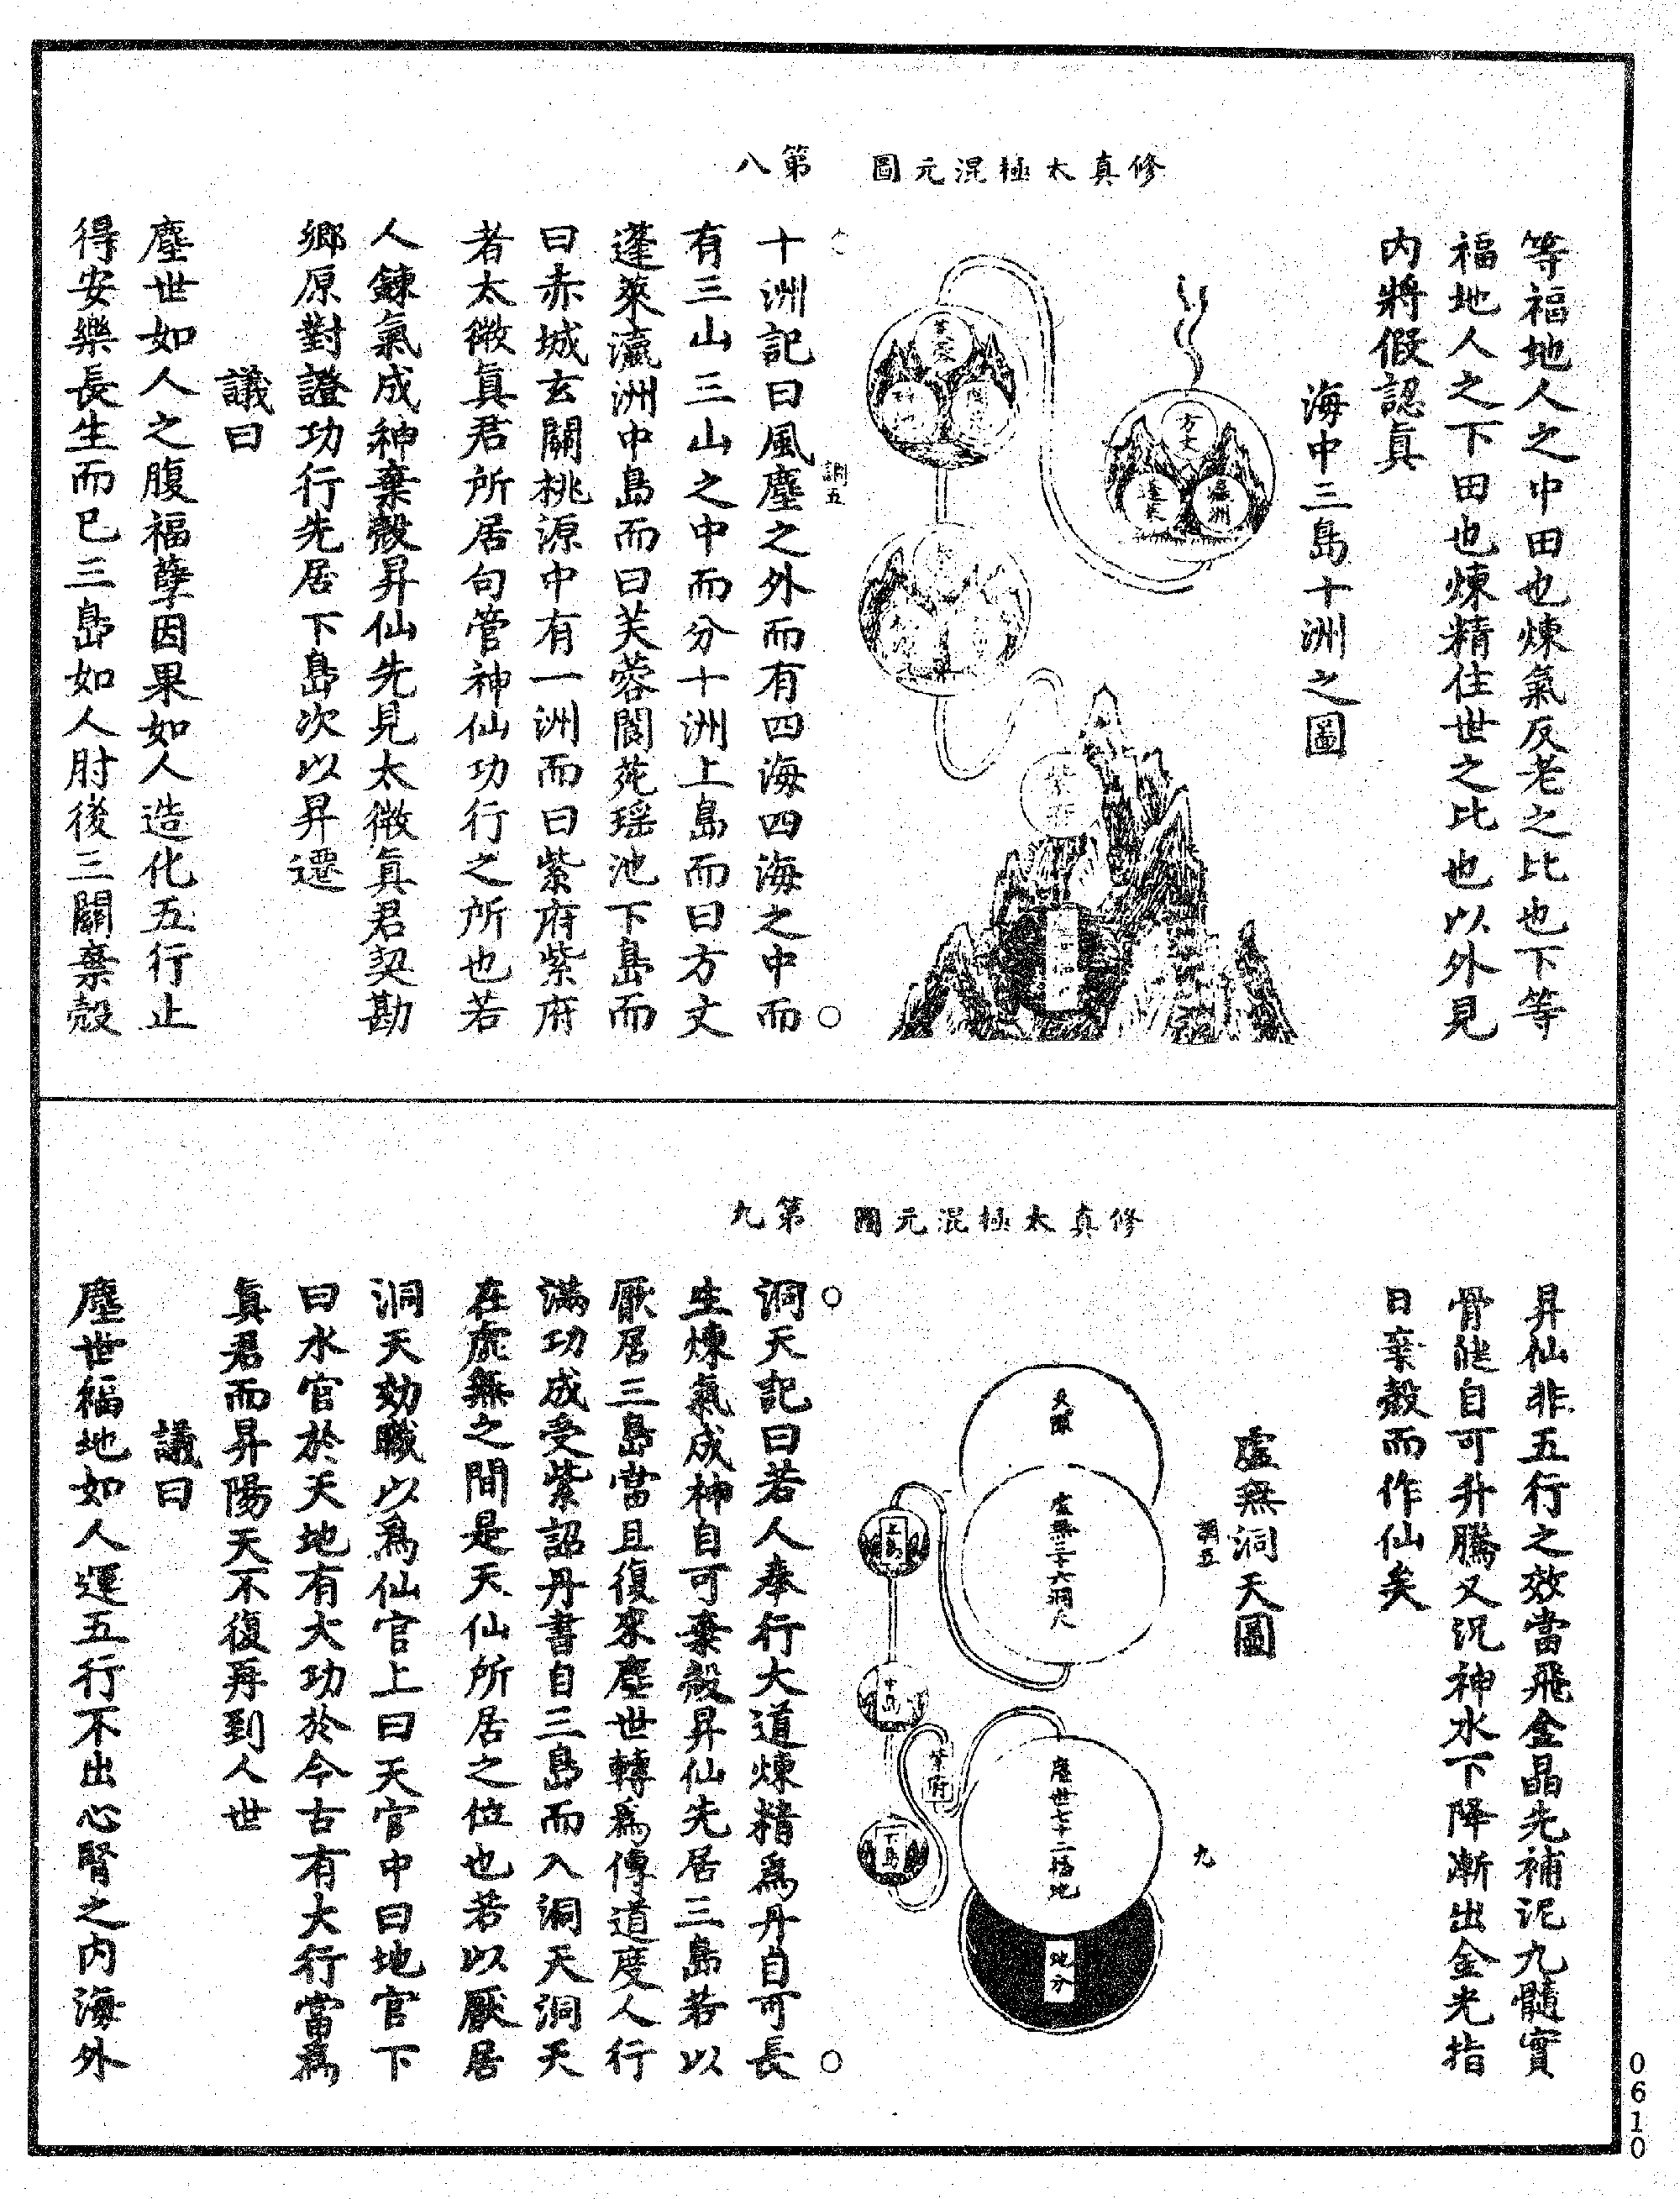 修真太極混元圖　第八
等福地人之中田也煉氣反老之比也下等
福地人之下田也煉精住世之比也以外見
内將假認真
海中三島十洲之圖
方丈
蓬萊
瀛洲
紫府
調五
十洲記曰風塵之外而有四海四海之中而
有三山三山之中而分十洲上島而曰方丈
蓬萊瀛洲中島而曰芙蓉閬苑瑶池下島而
曰赤城玄關桃源中有一洲而曰紫府紫府
者太微真君所居句管神仙功行之所也若
人鍊氣成神棄殼昇仙先見太微真君契勘
鄉原對證功行先居下島次以昇遷
議曰
塵世如人之腹福孽因果如人造化五行止
得安樂長生而已三島如人肘後三關棄殼
修真太極混元圖　第九
昇仙非五行之效當飛金晶先補泥九髓實
骨健自可升騰又況神水下降漸出金光指
日棄殼而作仙矣
虛無洞天圖
調五
九
虛無三十六洞天
上島
中島
下島
紫府
塵世七十二福地
地分
洞天記曰若人奉行大道煉精為丹自可長
生煉氣成神自可棄殼昇仙先居三島若以
厭居三島當且復來塵世轉為傳道度人行
滿功成受紫詔丹書自三島而入洞天洞天
在虛無之間是天仙所居之位也若以厭居
洞天効職以為仙官上曰天官中曰地官下
曰水官於天地有大功於今古有大行當為
真君而昇陽天不復再到人世
議曰
塵世福地如人運五行不出心腎之内海外
0610